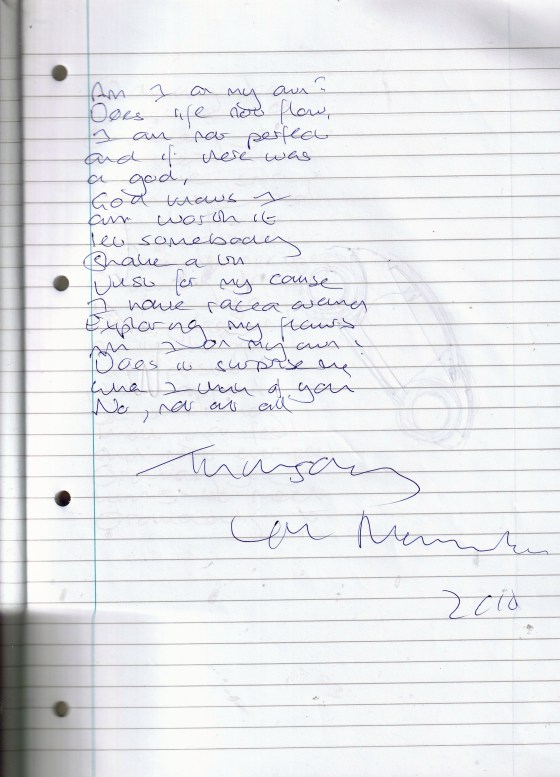 Am I on my own?
Does life not flow,
I am not perfect
and if there was
a god,
God knows I
am worth it
let somebody
Shake a tin
Just for my cause
I have raced around
Exploring my flaws
Am I on my own?
Does it surprise me
what I think of you
No, not at all
2010